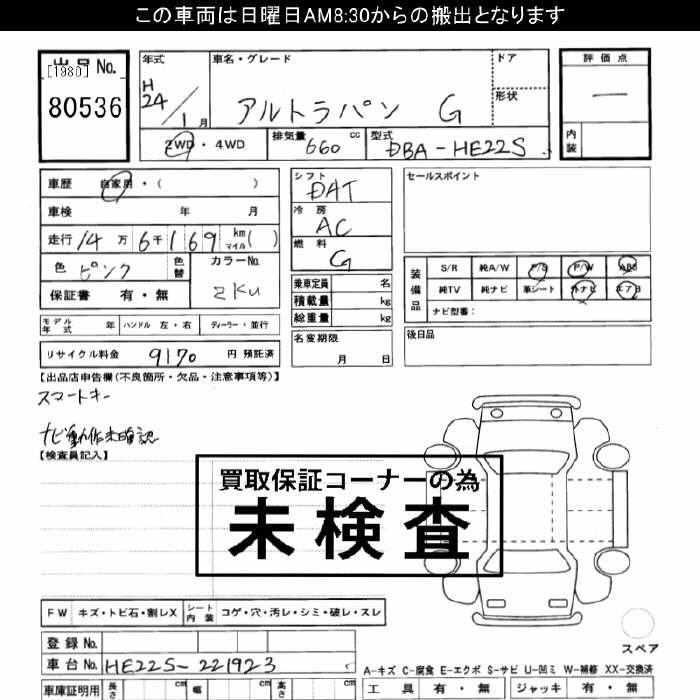 この車両は日曜日AM8:30からの搬出となります
出品No.
[1980]
80536
年式
H
24/1月
車名・グレード
アルトラパン G
ドア
形状
評価点
—
内装
2WD・4WD
排気量 660 cc
型式 DBA-HE22S
車歴 自家用・( )
車検 年 月
走行 14万6千169 km マイル( )
色 ピンク
色替
カラーNo. ZKU
保証書 有・無
モデル年式 年 ハンドル 左・右 ディーラー・並行
リサイクル料金 9170 円 預託済
シフト DAT
冷房 AC
燃料 G
乗車定員 名
積載量 kg
総重量 kg
名変期限
月 日
セールスポイント
装備品
S/R 純A/W P/S P/W ABS
純TV 純ナビ 革シート 外ナビ エアB
ナビ型番:
後日品
【出品店申告欄(不良箇所・欠品・注意事項等)】
スマートキー
ナビ動作未確認
【検査員記入】
買取保証コーナーの為
未検査
FW キズ・トビ石・割レX シート内装 コゲ・穴・汚レ・シミ・破レ・スレ
登録No.
車台No. HE22S-221923
スペア
A-キズ C-腐食 E-エクボ S-サビ U-凹ミ W-補修 XX-交換済
車庫証明用 長さ cm 幅 cm 高さ cm
工具 有・無 ジャッキ 有・無